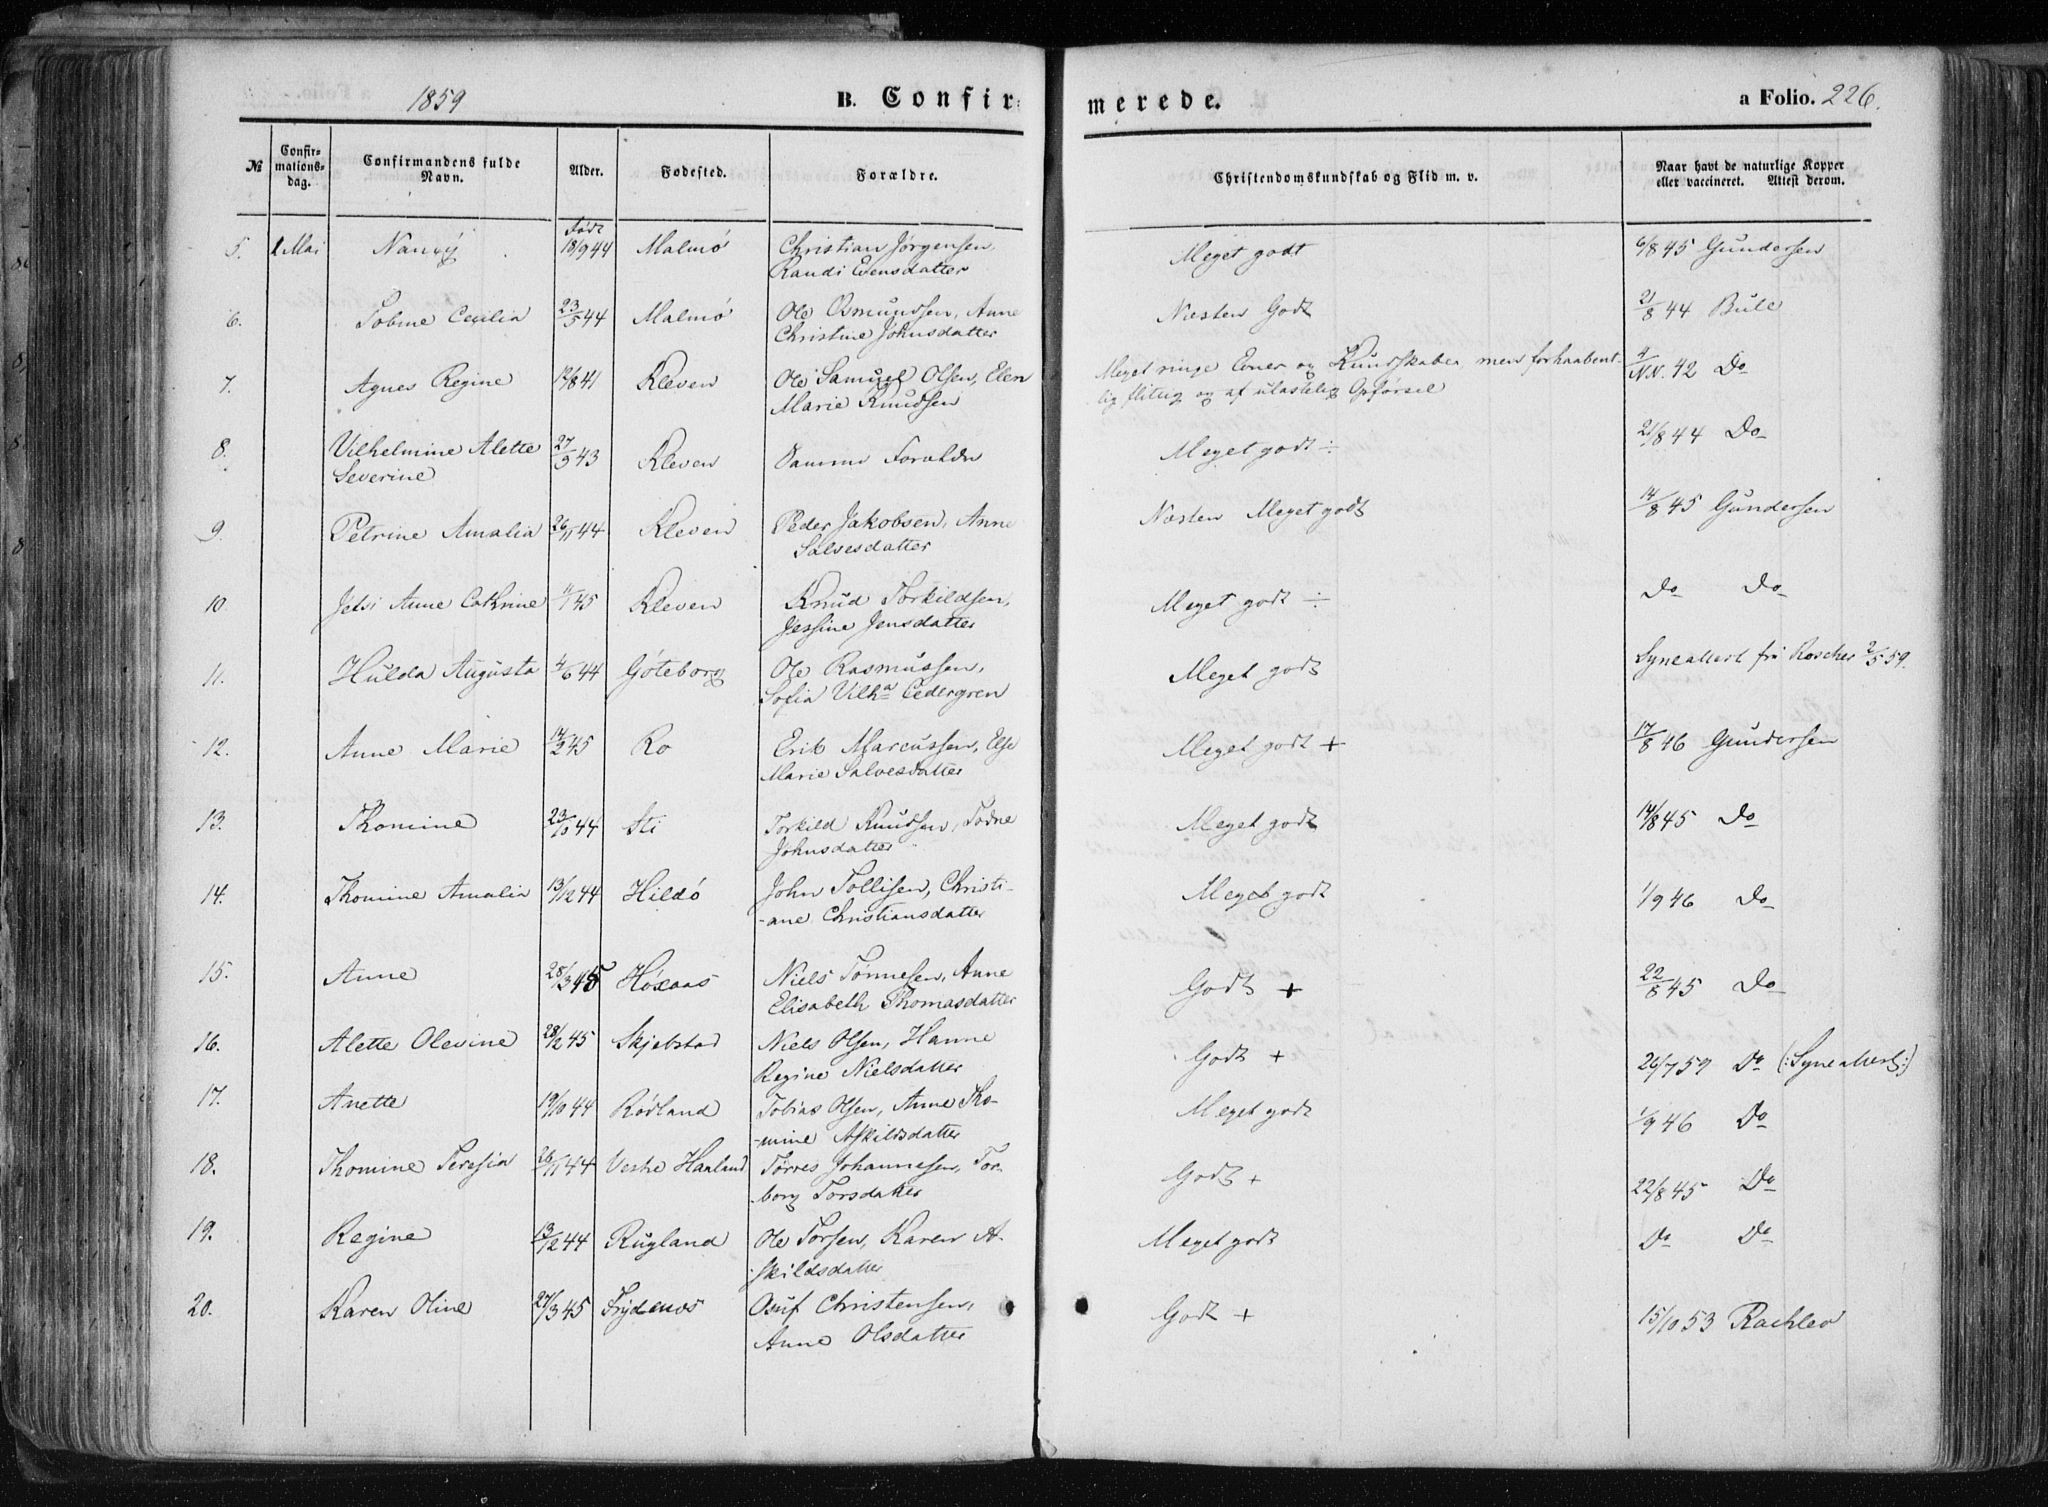 1859 B. Confirmerede. a Folio. 226.
№ Confirmationsdag. Confirmandens fulde Navn. Alder. Fødested. Forældre. Christendomskundskab og Flid m. v. Naar havt de naturlige Kopper eller vaccineret. Attest derom.
født
5. 1 Mai Nancy 18/9 44 Malmö Christian Jørgensen, Meget godt 6/8 45 Gundersen
Randi Evensdatter
6. Tobine Cecilia 23/5 44 Malmö Ole Osmundsen, Anne Næsten Godt 21/8 44 Bule
Christine Johnsdatter
7. Agnes Regine 12/8 41 Kleven Ole Samuel Olsen, Elen Meget ringe Evner og Kundskaber men forhaabent- 9/NN. 42 Do
Marie Knudsen lig flittig og af ulastelig Opførsel
8. Vilhelmine Alette 27/5 43 Kleven Samme Forældre Meget godt ÷ 21/8 44 Do
Severine
9. Petrine Amalia 26/11 44 Kleven Peder Jakobsen, Anne Næsten Meget godt 14/8 45 Gundersen
Salvesdatter
10. Anne Cathrine 45 Kleven Knud Torkildsen, Meget godt ÷ Do Do
Jessine Jensdatter
11. Hulda Augusta 4/6 44 Göteborg Ole Rasmussen, Meget godt Syneattest fra Roscher 2/5 59.
Sofia Vilhᵃ Cedergren
12. Anne Marie 14/2 45 Ro Erik Marcussen, Else Meget godt + 17/8 46 Gundersen
Marie Salvesdatter
13. Thomine 23/10 44 Sti Torkild Knudsen, Todne Meget godt 14/8 45 Do
Johnsdatter
14. Thomine Amalia 13/12 44 Hildö John Tollisen, Christi- Meget godt 1/9 46 Do
-ane Christiansdatter
15. Anne 28/3 45 Höxaas Niels Tønnesen, Anne Godt + 22/8 45 Do
Elisabeth Thomasdatter
16. Alette Olevine 28/2 45 Skjebstad Niels Olsen, Hanne Godt + 26/7 59 Do (:Syneattest:)
Regine Nielsdatter
17. Anette 19/10 44 Rödland Tobias Olsen, Anne Tho- Meget godt 1/9 46 Do
-mine Askildsdatter
18. Thomine Teresia 26/11 44 Vestre Haaland Tørres Johannesen, Tor- Godt + 22/8 45 Do
borg Torsdatter
19. Regine 13/12 44 Rugland Ole Torsen, Karen A- Meget godt Do Do
skildsdatter
20. Karen Oline 27/3 45 Osuf Christensen, Godt + 15/10 53 Rachlev
Anne Olsdatter